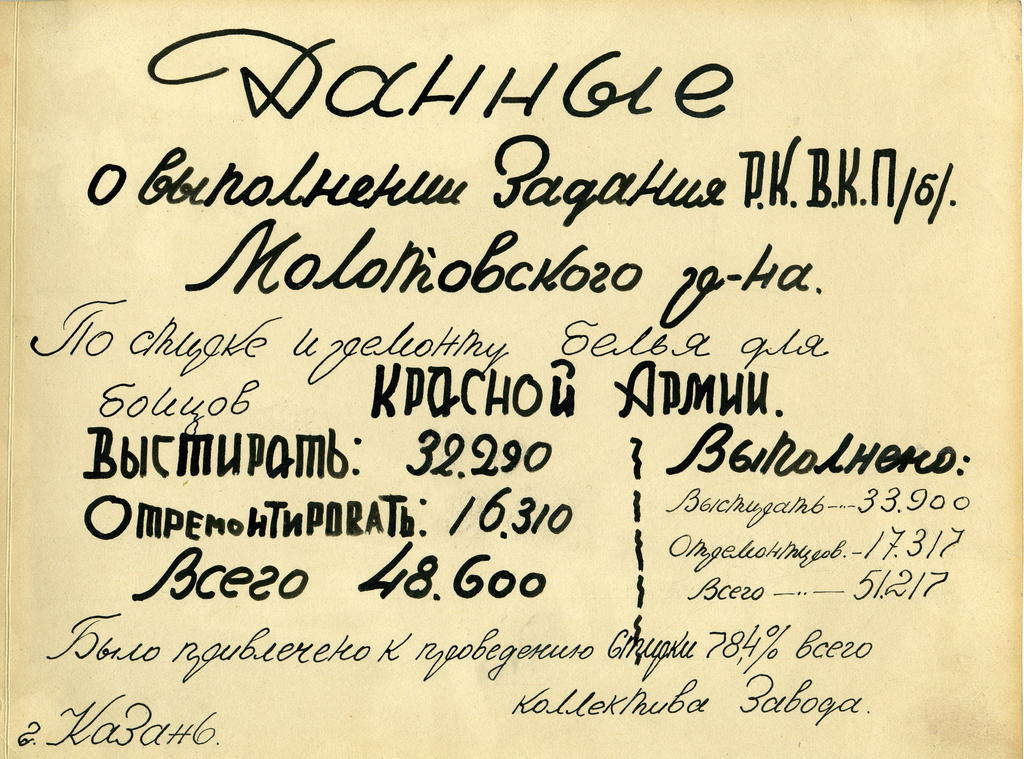 Данные
о выполнении Задания Р.К. В.К.П/б/.
Молотовского р-на.
По стирке и ремонту белья для
бойцов КРАСНОЙ АРМИИ.
ВЫСТИРАТЬ: 32.290
ОТРЕМОНТИРОВАТЬ: 16.310
Всего 48.600
Выполнено:
Выстирать--··-33.900
Отремонтиров.-17.317
Всего —··— 51.217
Было привлечено к проведению стирки 78,4% всего
коллектива Завода.
г. Казань.